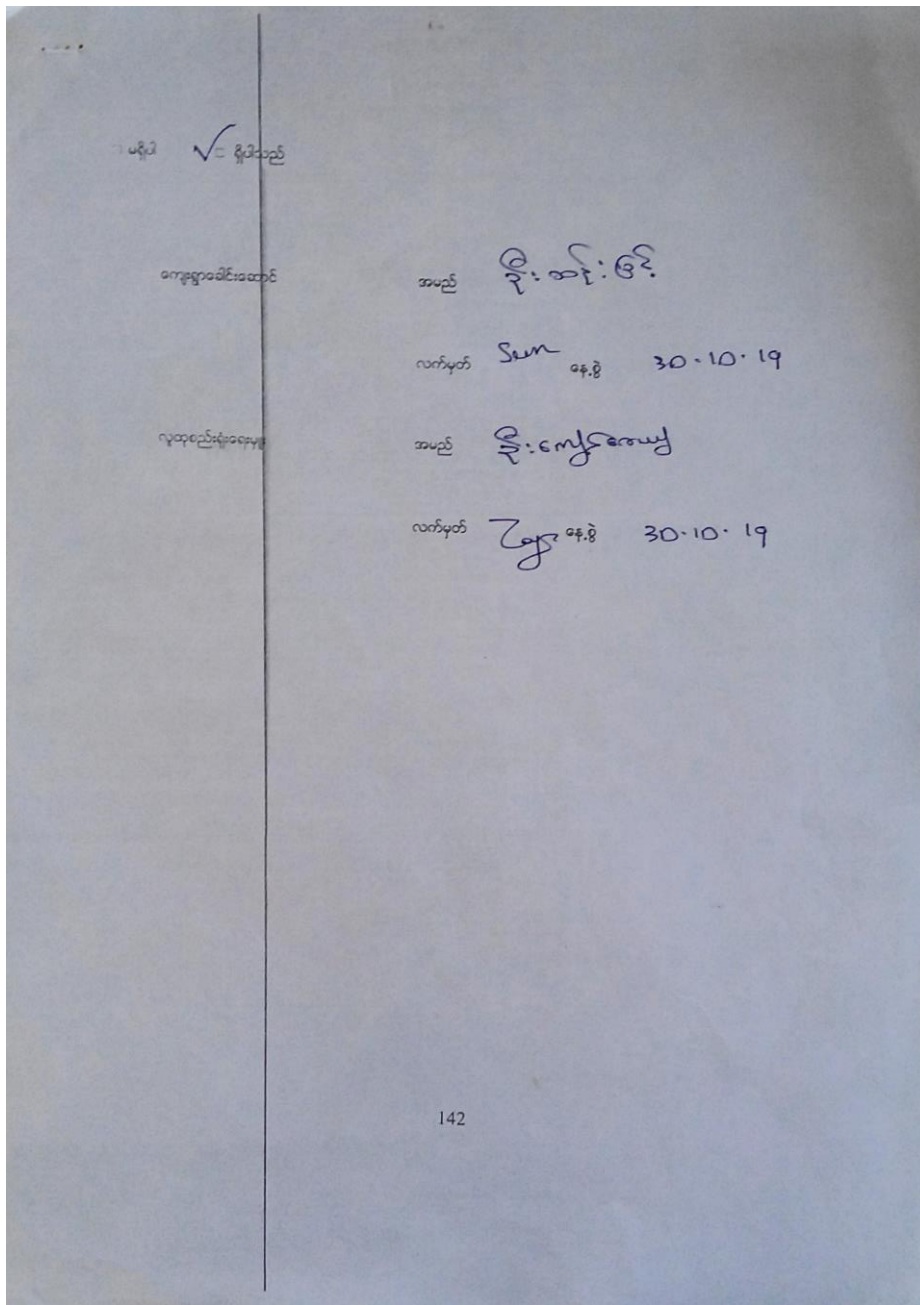 မရှိပါ √ ရှိပါသည်
ကျေးရွာခေါင်းဆောင် အမည် ဦးဆန်းမြင့်
လက်မှတ် Sun နေ့စွဲ 30.10.19
လူထုစည်းရုံးရေးမှူး အမည် ဦးကျော်ဇေယျ
လက်မှတ် နေ့စွဲ 30.10.19
142